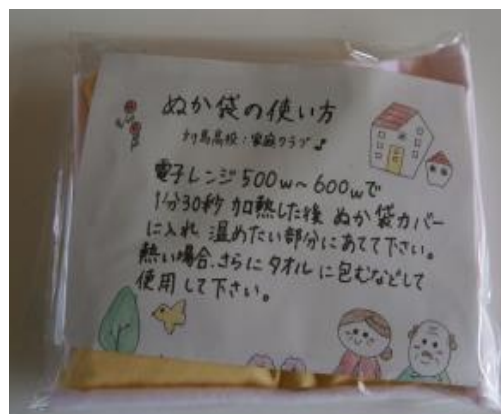 ぬか袋の使い方
対馬高校:家庭クラブ♪
電子レンジ500w～600wで
1分30秒 加熱した後 ぬか袋カバー
に入れ 温めたい部分にあてて下さい。
熱い場合、さらにタオルに包むなどして
使用して下さい。